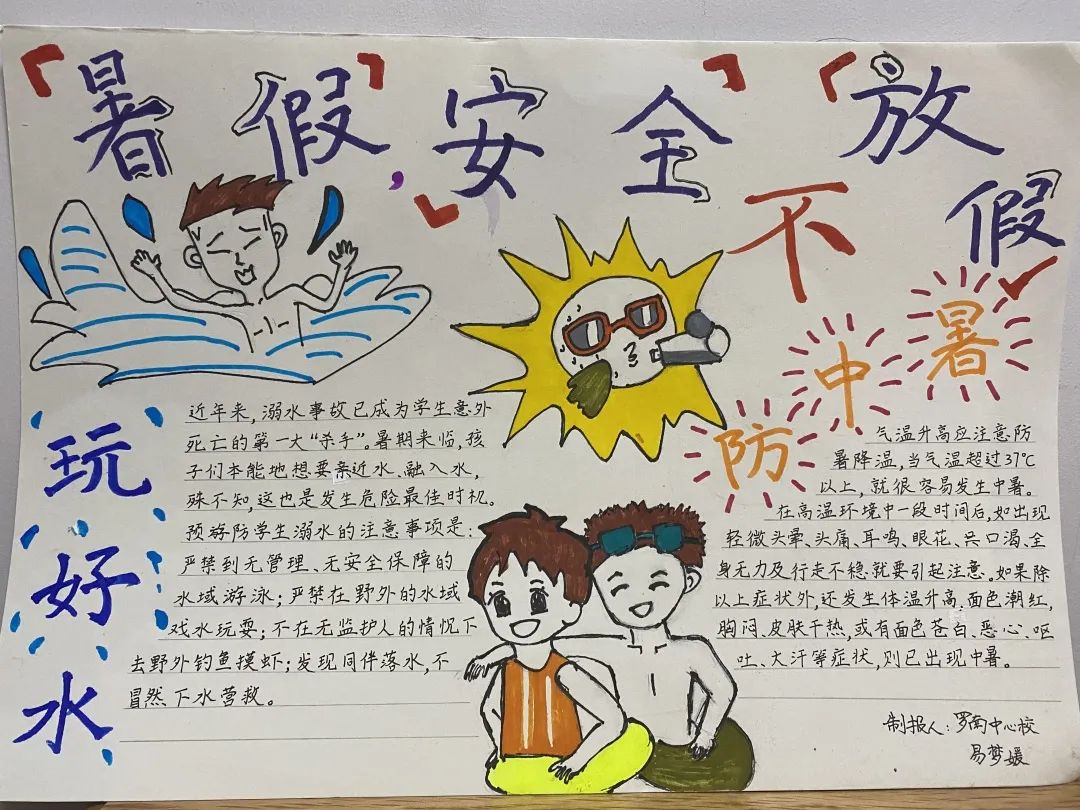 「暑假」,安全」「放
不假
玩好水
近年来,溺水事故已成为学生意外
死亡的第一大“杀手”。暑期来临,孩
子们本能地想要亲近水、融入水,
殊不知,这也是发生危险最佳时机。
预防学生溺水的注意事项是:
严禁到无管理、无安全保障的
水域游泳;严禁在野外的水域
戏水玩耍;不在无监护人的情况下
去野外钓鱼摸虾;发现同伴落水,不
冒然下水营救。
防中暑
气温升高应注意防
暑降温,当气温超过37℃
以上,就很容易发生中暑。
在高温环境中一段时间后,如出现
轻微头晕、头痛、耳鸣、眼花、口渴、全
身无力及行走不稳就要引起注意。如果除
以上症状外,还发生体温升高、面色潮红,
胸闷、皮肤干热,或有面色苍白、恶心、呕
吐、大汗等症状,则已出现中暑。
制报人:罗南中心校
易梦媛